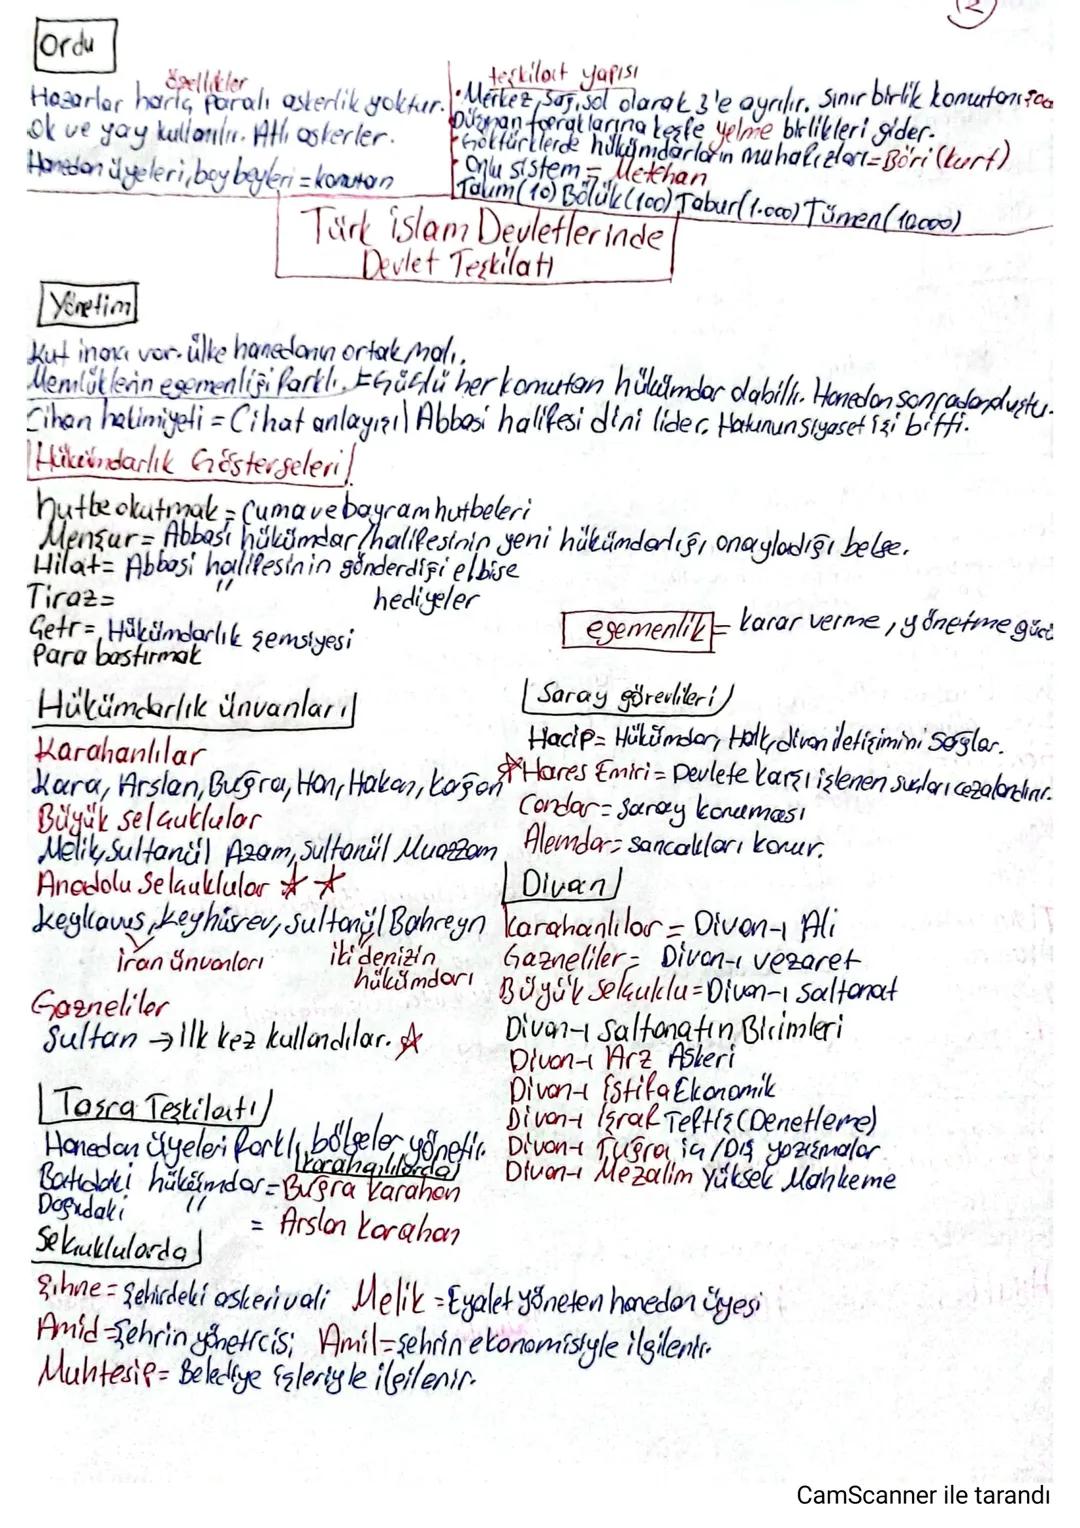 2
Ordu
özellikler
Hazarlar hariç paralı askerlik yoktur.
Ok ve yay kullanılır. Atlı askerler.
Hanedan üyeleri, boy beyleri = komutan
teşkilat yapısı
• Merkez, sağ, sol olarak 3'e ayrılır. Sınır birlik komutanı
Düşman topraklarına keşfe yelme birlikleri gider.
Göktürklerde hükümdarların muhafızları = Böri (kurt)
Onlu sistem = Metehan
Takım (10) Bölük (100) Tabur (1.000) Tümen (10000)
Türk İslam Devletlerinde
Devlet Teşkilatı
Yönetim
Kut inancı var. ülke hanedanın ortak malı.
Memlüklerin egemenliği farklı. Güçlü her komutan hükümdar olabilir. Hanedan sonradan oluştu.
Cihan hakimiyeti = Cihat anlayışı | Abbasi halifesi dini lider. Hatunun siyaset işi bitti.
Hükümdarlık Göstergeleri
hutbe okutmak = Cuma ve bayram hutbeleri
Menşur = Abbasi hükümdar/halifesinin yeni hükümdarlığı onayladığı belge.
Hilat = Abbasi halifesinin gönderdiği elbise
Tiraz = " hediyeler
Çetr = Hükümdarlık şemsiyesi
Para bastırmak
egemenlik = karar verme, yönetme gücü
Hükümdarlık ünvanları
Karahanlılar
Kara, Arslan, Buğra, Han, Hakan, Kağan
Büyük selçuklular
Melik, Sultanül Azam, Sultanül Muazzam
Anadolu Selçuklular ☆ ☆
keykavus, keyhüsrev, Sultanül Bahreyn
iran ünvanları
iki denizin
hükümdarı
Gazneliler
Sultan → ilk kez kullandılar. ☆
Saray görevlileri
Hacip = Hükümdar, Halk, divan iletişimini sağlar.
☆ Hares Emiri = Devlete karşı işlenen suçları cezalandırır.
Candar = saray koruması
Alemdar = sancakları korur.
Divan
Karahanlılar = Divan-ı Ali
Gazneliler = Divan-ı vezaret
Büyük selçuklu = Divan-ı Saltanat
Divan-ı Saltanatın Birimleri
Divan-ı Arz Askeri
Divan-ı İstifa Ekonomik
Divan-ı İşraf Teftiş (Denetleme)
Divan-ı Tuğra iç/Dış yazışmalar
Divan-ı Mezalim Yüksek Mahkeme
Taşra Teşkilatı
Hanedan üyeleri farklı bölgeler yönetir.
Karahanlılarda
Batıdaki hükümdar = Buğra Karahan
Doğudaki " = Arslan Karahan
Selçuklularda
Şıhne = Şehirdeki askeri vali Melik = Eyalet yöneten hanedan üyesi
Amid = Şehrin yöneticisi Amil = Şehrin ekonomisiyle ilgilenir.
Muhtesip = Belediye işleriyle ilgilenir.
CamScanner ile tarandı